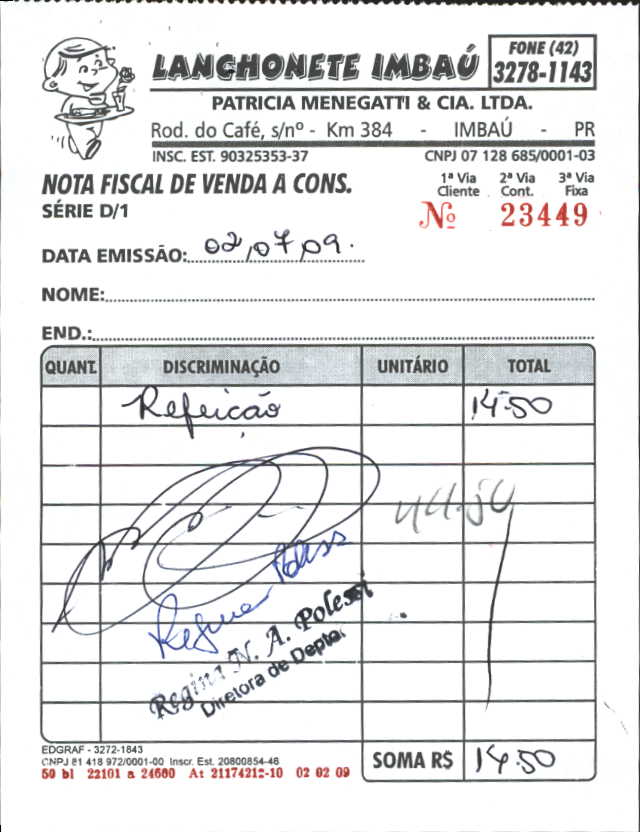 LANCHONETE IMBAÚ
FONE (42)
3278-1143
PATRICIA MENEGATTI & CIA. LTDA.
Rod. do Café, s/nº - Km 384 - IMBAÚ - PR
INSC. EST. 90325353-37 CNPJ 07 128 685/0001-03
NOTA FISCAL DE VENDA A CONS.
1ª Via Cliente 2ª Via Cont. 3ª Via Fixa
SÉRIE D/1
Nº 23449
DATA EMISSÃO: 02,07,09.
NOME:
END.:
QUANT. DISCRIMINAÇÃO UNITÁRIO TOTAL
Refeição 14.50
44.50
Regina N. A. Polessi
Diretora de Depto.
EDGRAF - 3272-1843
CNPJ 81 418 972/0001-00 Inscr. Est. 20800854-46
50 bl 22101 a 24600 At 21174212-10 02 02 09
SOMA R$ 14.50